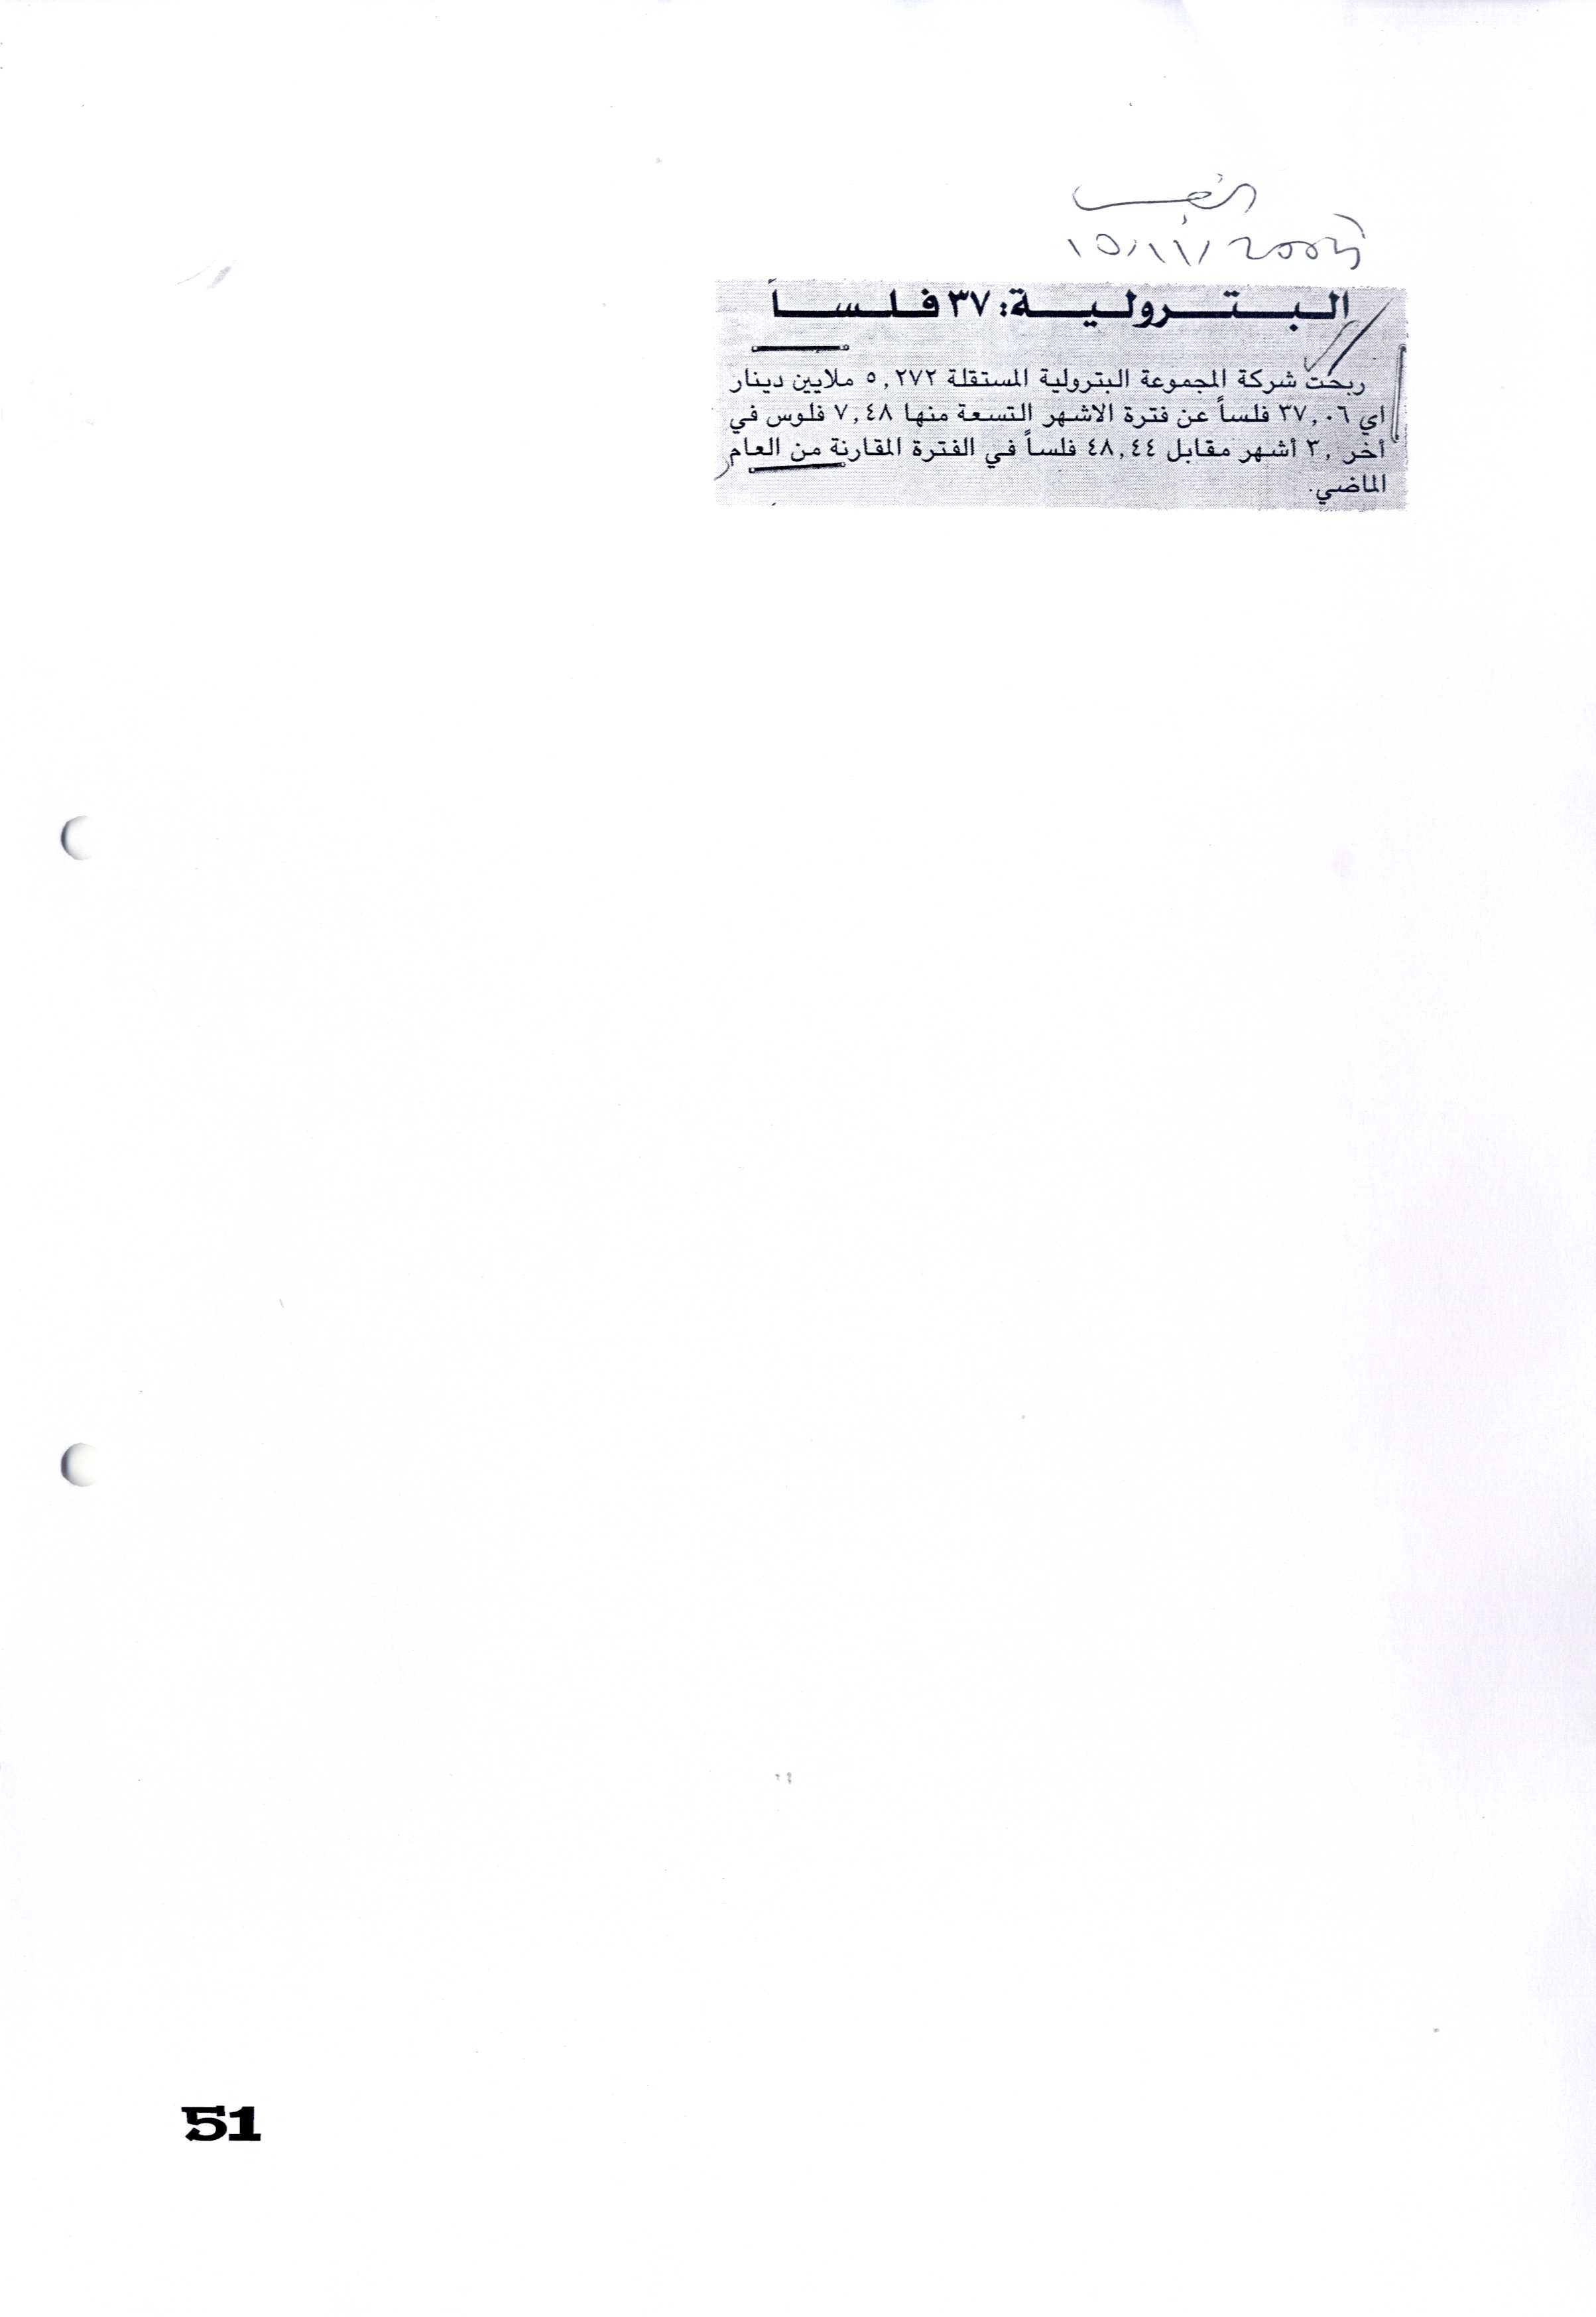 القبس
البترولية: ٣٧ فلساً
ربحت شركة المجموعة البترولية المستقلة ٥,٢٧٢ ملايين دينار
اي ٣٧,٠٦ فلساً عن فترة الاشهر التسعة منها ٧,٤٨ فلوس في
أخر ٣ أشهر مقابل ٤٨,٤٤ فلساً في الفترة المقارنة من العام
الماضي.
51